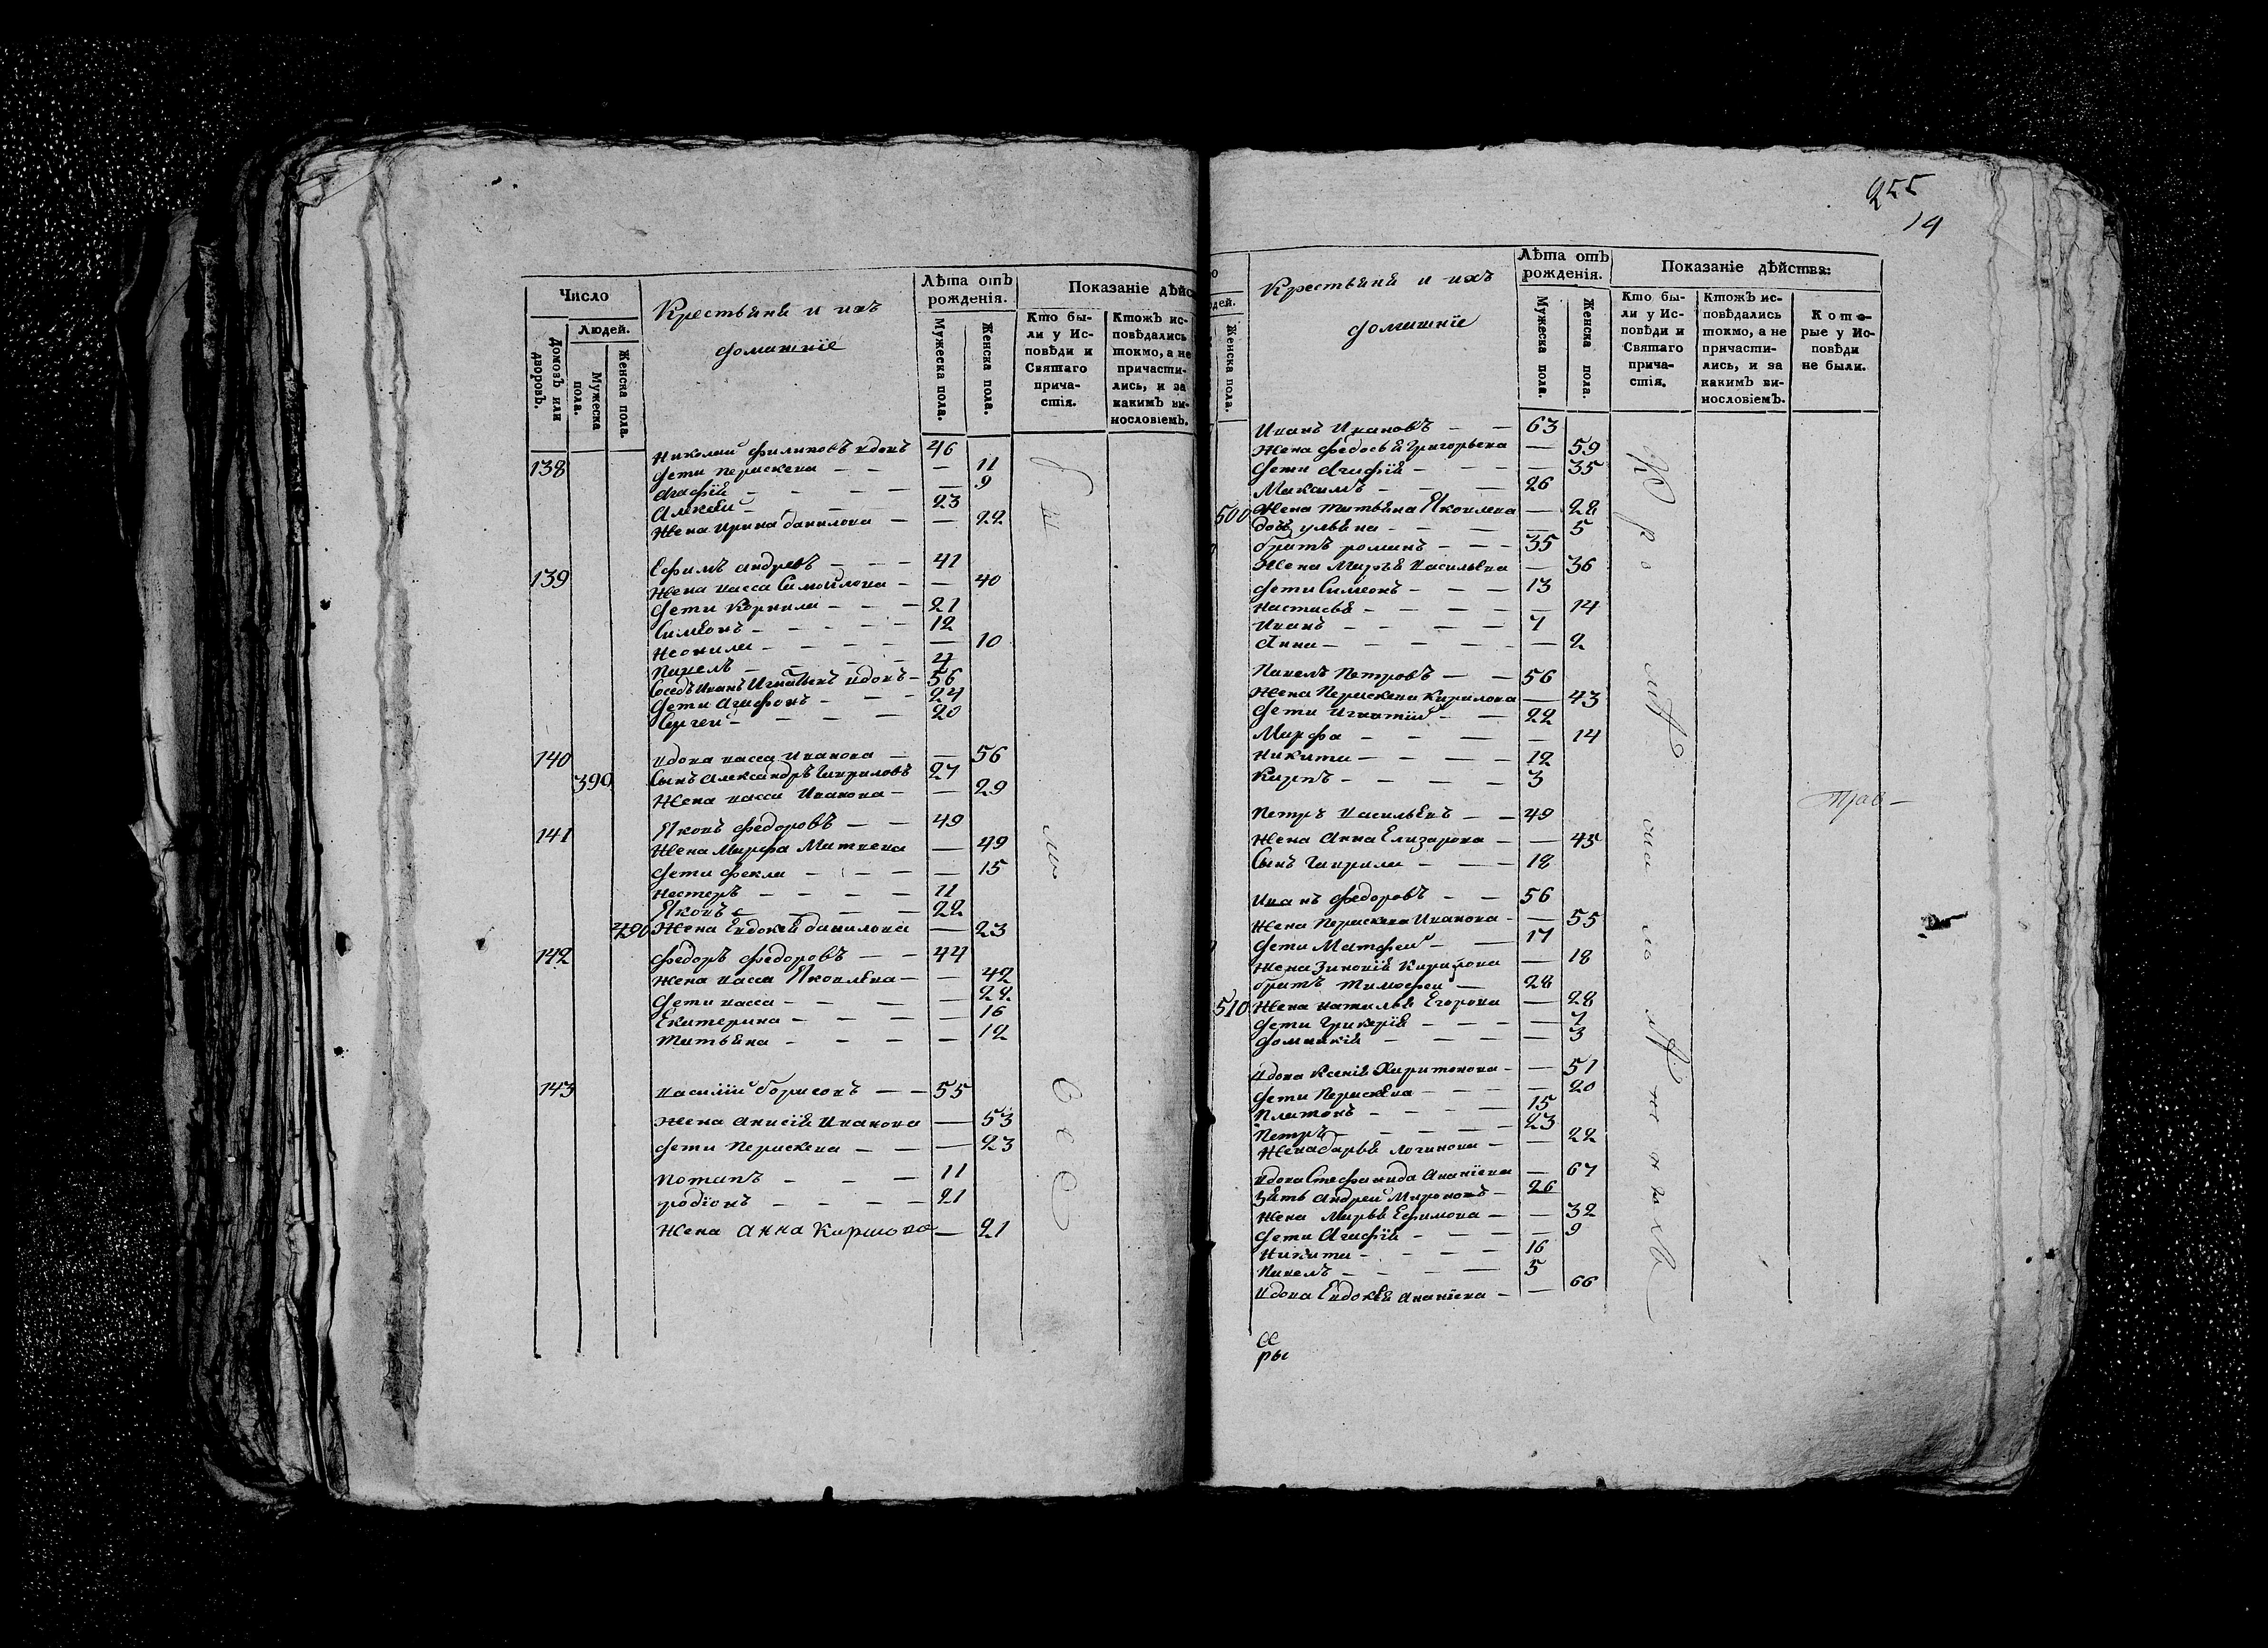 Число
Людей.
Домовъ или дворовъ.
Мужеска пола.
Женска пола.
Крестьяне и ихъ
домашніе
Лѣта отъ рожденія.
Мужеска пола.
Женска пола.
Показаніе дѣйс
Кто были у Исповѣди и Святаго причастія.
Ктожъ исповѣдались токмо, а не причастились, и за какимъ винословіемъ.
138 Николай Филиповъ вдовъ 46
дети Параскева — — — 11
Агафія — — — 9
Алексей — — 23
Жена Ирина данилова — — 22
139 Ефимъ Андреевъ — — 41
Жена васса Самойлова — — 40
дети Корнили — — 21
Симеонъ — — 12
Неонила — — — 10
Павелъ — — 4
Соседъ Иванъ Игнатьевъ вдовъ — 56
дети Агафонъ — — 24
Сергей — — 20
140 вдова васса Иванова — — 56
390 Сынъ Александръ Гавриловъ 27
Жена васса Иванова — — 29
141 Яковъ Федоровъ — — 49
Жена Марфа Матвеева — 49
дети Фекла — — — 15
Нестеръ — — 11
Яковъ — — 22
490 Жена Евдокея данилова — 23
142 Федоръ Федоровъ — — 44
Жена васса Яковлева — — 42
дети васса — — — 22
Екатерина — — — 16
Татьяна — — — 12
143 василій борисовъ — — 55
Жена Анисія Иванова — 53
дети Параскева — — — 23
Потапъ — — 11
родіонъ — — 21
Жена Анна Карпова — 21
255
14
дей.
Женска пола.
Крестьяне и ихъ
домашніе
Лѣта отъ рожденія.
Мужеска пола.
Женска пола
Показаніе дѣйства:
Кто были у Исповѣди и Святаго причастія.
Ктожъ исповѣдались токмо, а не причастились, и за какимъ винословіемъ.
Которые у Исповѣди не были.
Иванъ Ивановъ — — 63
Жена Федосья Григорьева — 59
дети Агафія — — — 35
Максимъ — — 26
500 Жена татьяна Яковлева — 28
дочь ульяна — — — 5
братъ романъ — — 35
Жена Марья васильева — 36
дети Симеонъ — — 13
Настасья — — — 14
Иванъ — — 7
Анна — — — 2
Павелъ Петровъ — — 56
Жена Параскева Кирилова — 43
дети Игнатій — — 22
Марфа — — — 14
Никита — — 12
Карпъ — — 3
Петръ васильевъ — — 49
Жена Анна Елизарова — — 45
Сынъ Гаврила — — 18
Иванъ Федоровъ — — 56
Жена Параскева Иванова — — 55
дети Матфей — — 17
Жена Зиновія Кирилова — 18
братъ тимофей — 28
510 Жена наталья Егорова — 28
дети Гликерія — — — 7
домникія — — — 3
вдова Ксенія Харитонова — — 51
дети Параскева — — — 20
Платонъ — — 15
Петръ — — 23
Жена дарья логинова — — 22
вдова Стефанида Ананіева — 67
Зять Андрей Мироновъ — 26
Жена Марья Ефимова — — 32
дети Агафія — — — 9
Никита — — 16
Павелъ — — 5
вдова Евдокея Ананіева — — 66
ры